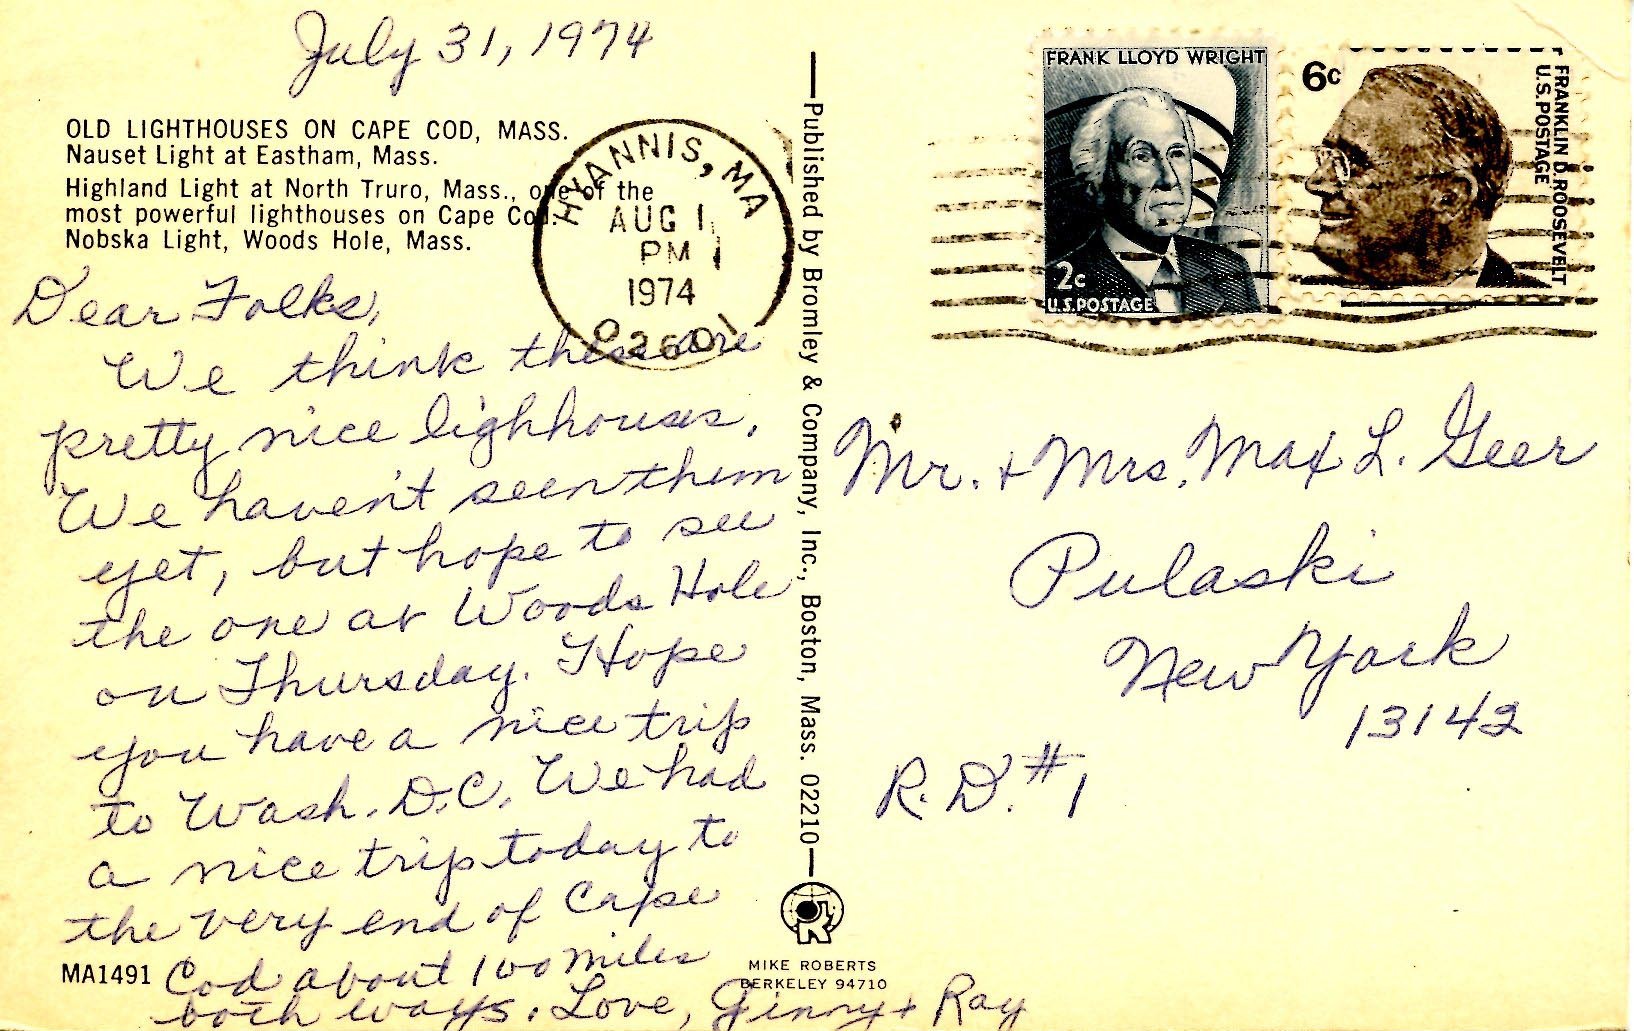 July 31, 1974
OLD LIGHTHOUSES ON CAPE COD, MASS.
Nauset Light at Eastham, Mass.
Highland Light at North Truro, Mass., one of the
most powerful lighthouses on Cape Cod.
Nobska Light, Woods Hole, Mass.
HYANNIS, MA
AUG 1
PM
1974
02601
Dear Folks,
We think these are
pretty nice lighhouses.
We haven't seen them
yet, but hope to see
the one at Woods Hole
on Thursday. Hope
you have a nice trip
to Wash. D.C. We had
a nice trip today to
the very end of Cape
Cod about 100 miles
both ways. Love, Ginny + Ray
MA1491
Published by Bromley & Company, Inc., Boston, Mass. 02210
MIKE ROBERTS
BERKELEY 94710
FRANK LLOYD WRIGHT
2c
U.S. POSTAGE
6c
FRANKLIN D. ROOSEVELT
U.S. POSTAGE
Mr. + Mrs. Max L. Geer
Pulaski
New York
13142
R.D. #1